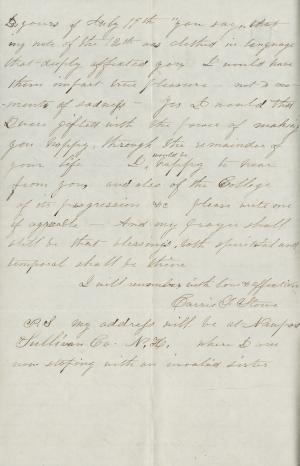 yours of July 19th you say that
my note of the 12th was clothed in language
that deeply affected you I would have
them impart true pleasure — not moments
of sadness — Yes I would that
I were gifted with the power of making
you happy, through the remainder of
your life I would be happy to hear
from you and also of the College
of its progression &c please write me
if agreeable — And my prayer shall
still be that blessings, both spiritual and
temporal shall be thine
I will remember with love & affection
Carrie Stone
P.S my address will be at Newport
Sullivan Co. N.H. where I am
now stoping with an invalid sister